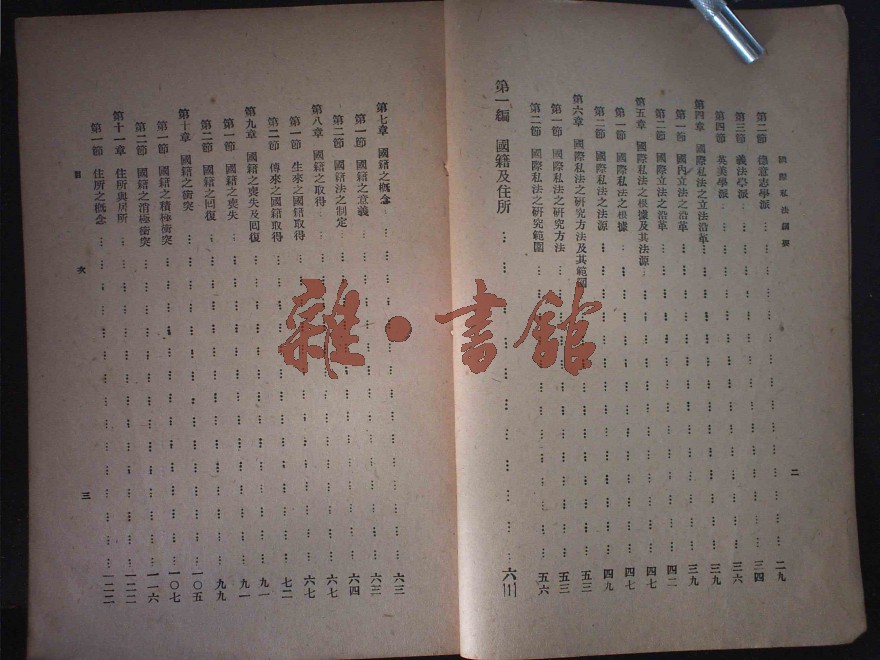 國際私法綱要
二
第二節 德意志學派 二九
第三節 義法學派 三四
第四節 英美學派 三六
第四章 國際私法之立法沿革 三九
第一節 國內立法之沿革 三九
第二節 國際立法之沿革 四二
第五章 國際私法之根據及其法源 四七
第一節 國際私法之根據 四七
第二節 國際私法之法源 四九
第六章 國際私法之研究方法及其範圍 五三
第一節 國際私法之研究方法 五三
第二節 國際私法之研究範圍 五六
第一編 國籍及住所 六三
第七章 國籍之概念 六三
第一節 國籍之意義 六三
第二節 國籍法之制定 六四
第八章 國籍之取得 六七
第一節 生來之國籍取得 六七
第二節 傳來之國籍取得 七二
第九章 國籍之喪失及回復 九一
第一節 國籍之喪失 九一
第二節 國籍之回復 九九
第十章 國籍之衝突 一〇五
第一節 國籍之積極衝突 一〇七
第二節 國籍之消極衝突 一一六
第十一章 住所與居所 一二二
第一節 住所之概念 一二二
目次
三
雜·書館